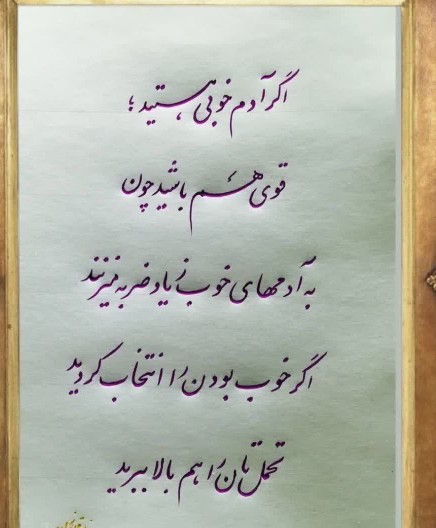 اگر آدم خوبی هستید؛
قوی هم باشید چون
به آدمهای خوب زیاد ضربه میزنند
اگر خوب بودن را انتخاب کردید
تحمل تان را هم بالا ببرید